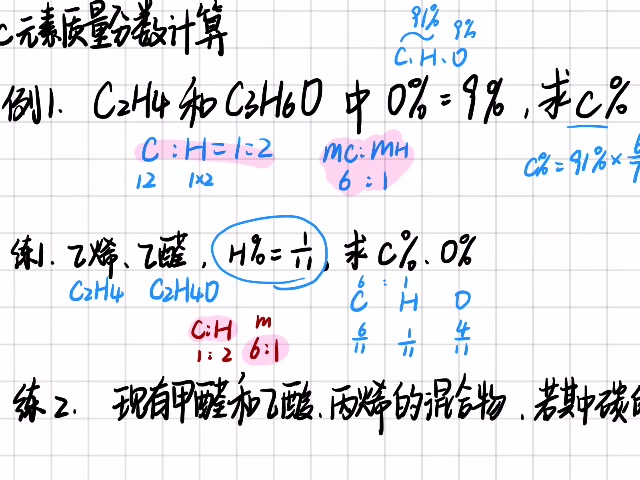 C元素质量分数计算
91% 9%
C.H.O
例1. C2H4和C3H6O中O%=9%,求C%
C:H=1:2
12 1×2
mC:mH
6:1
C%=91%×
练1. 乙烯、乙醛,H%=1/11,求C%.O%
C2H4 C2H4O
6:1
C H O
6/11 1/11 4/11
C:H m
1:2 6:1
练2. 现有甲醛和乙酸、丙烯的混合物,若其中碳